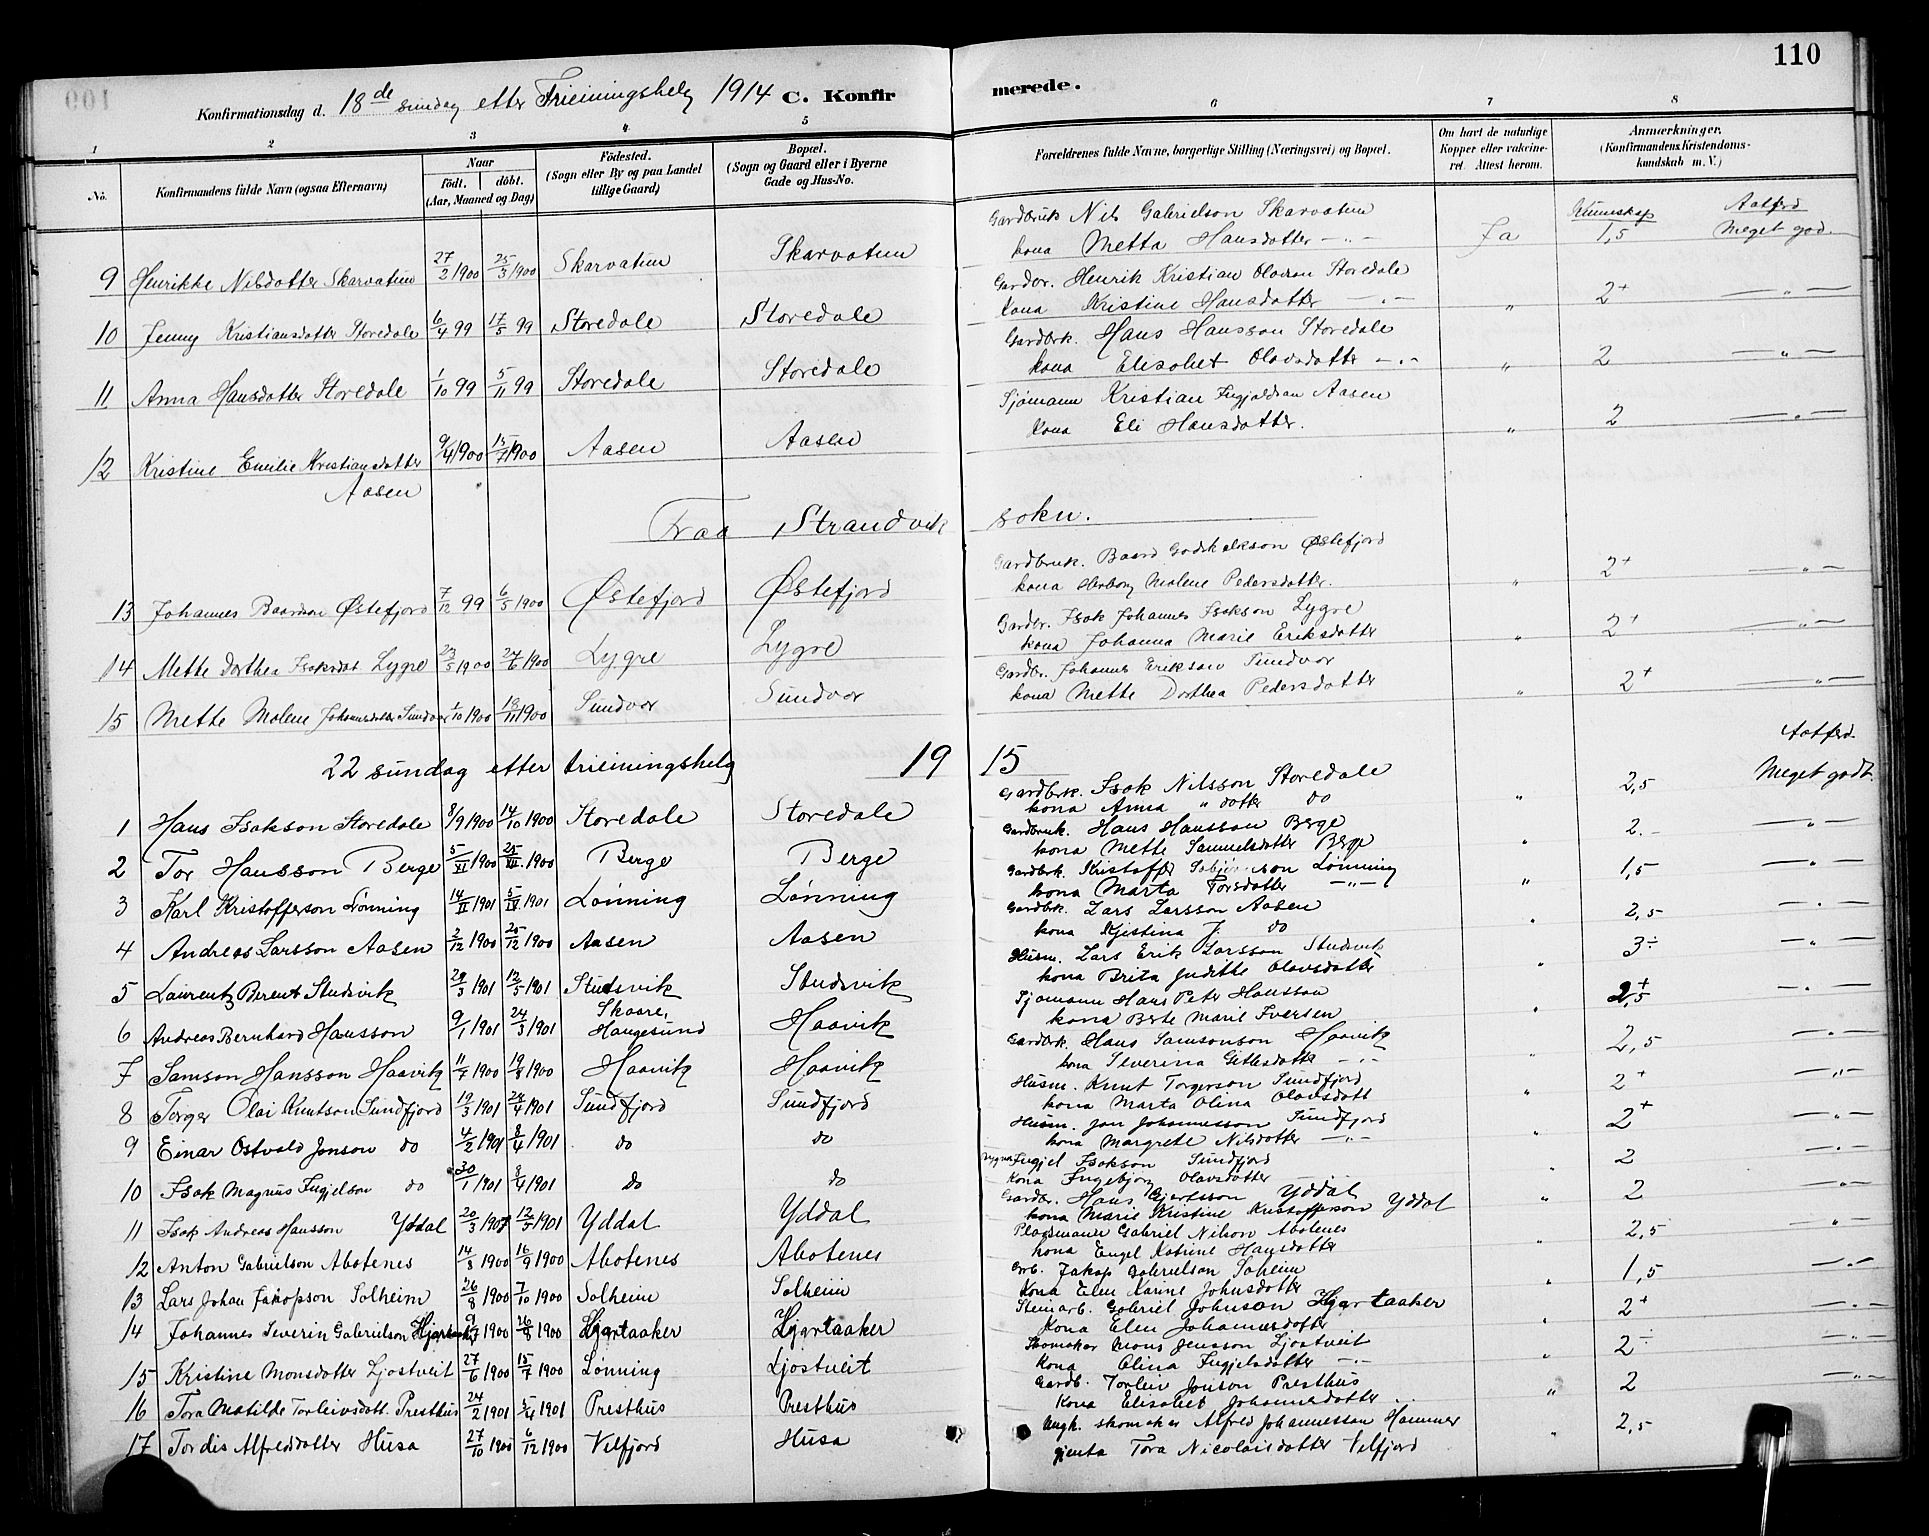 110
Konfirmationsdag d. 18de sundag etter Trieiningshelg 1914 C. Konfirmerede.
1 2 3 4 5 6 7 8
No. Konfirmandens fulde Navn (ogsaa Efternavn) Naar födt. döbt. (Aar, Maaned og Dag) Födested. (Sogn eller By og paa Landet tillige Gaard) Bopæl. (Sogn og Gaard eller i Byerne Gade og Hus-No. Forældrenes fulde Navne, borgerlige Stilling (Næringsvei) og Bopæl. Om havt de naturlige Kopper eller vakcineret. Attest herom. Anmærkninger. (Konfirmandens Kristendomskundskab m. V.)
Kunnskap Aatferd
9 Henrikke Nilsdotter Skarvatun 27/2 1900 25/3 1900 Skarvatun Skarvatun Gardbruk Nils Gabrielson Skarvatun
kona Metta Hansdotter —„— Ja 1,5 Meget god.
10 Jenny Kristiansdotter Storedale 6/4 99 17/5 99 Storedale Storedale Gardbr. Henrik Kristian Olavson Storedale
kona Kristine Hansdotter —„— „ 2+ —„—
11 Anna Hansdotter Storedale 1/10 99 5/11 99 Storedale Storedale Gardbrk. Hans Hansson Storedale
kona Elisabet Olavsdotter —„— „ 2 —„—
12 Kristine Emilie Kristiansdotter Aasen 9/4 1900 15/7 1900 Aasen Aasen Sjømann Kristian Ingjaldson Aasen
kona Eli Hansdotter. „ 2 —„—
Fraa Strandvik sokn.
13 Johannes Baardson Østefjord 7/12 99 6/5 1900 Østefjord Østefjord Gardbruk. Baard Godskalkson Østefjord
kona Herborg Malene Pedersdotter. „ 2+ —„—
14 Mette Dorthea Isaksdot. Lygre 23/5 1900 24/6 1900 Lygre Lygre Gardbr. Isak Johannes Isakson Lygre
kona Johanna Marie Eriksdotter „ 2+ —„—
15 Mette Malene Johannesdotter Sundvor 1/10 1900 18/11 1900 Sundvor Sundvor Gardbr. Johannes Erikson Sundvor
kona Mette Dorthea Pedersdotter „ 2+ —„—
22 sundag etter trieiningshelg 1915
Aatferd.
1 Hans Isakson Storedale 8/9 1900 14/10 1900 Storedale Storedale Gardbrk. Isak Nilsson Storedale
kona Anna „ dotter do „ 2,5 Meget godt.
2 Tor Hansson Berge 5/XI 1900 25/XII 1900 Berge Berge Gardbruk. Hans Hansson Berge
kona Mette Samuelsdotter Berge „ 2.- —„—
3 Karl Kristofferson Lønning 14/II 1901 5/IV 1901 Lønning Lønning Gardbrk. Kristoffer Lønning
kona Marta Torsdotter —„— „ 1,5 —„—
4 Andreas Larsson Aasen 2/12 1900 25/12 1900 Aasen Aasen Gardbrk. Lars Larsson Aasen
kona Kjistina J. do „ 2,5 —„—
5 Laurentz Berent Studsvik 29/3 1901 12/5 1901 Studsvik Studsvik Husm. Lars Erik Larsson Studsvik
kona Brita Judithe Olavsdotter „ 3÷ —„—
6 Andreas Bernhard Hansson 9/1 1901 24/3 1901 Skaare, Haugesund Haavik Sjømann Hans Peter Hansson
kona Berte Marie Iversen „ 2,5+ —„—
7 Samson Hansson Haavik 11/7 1900 19/8 1900 Haavik Haavik Gardbrk. Hans Samsonson Haavik
kona Severina Gitlesdotter —„— „ 2,5 —„—
8 Torger Olai Knutson Sundfjord 19/3 1901 28/4 1901 Sundfjord Sundfjord Husm. Knut Torgerson Sundfjord
kona Marta Olina Olavsdott „ 2+ —„—
9 Einar Ostvald Jonson do 4/2 1901 8/4 1901 do do Husm. Jon Johannesson Sundfjord
kona Margrete Nilsdotter —„— „ 2+ —„—
10 Isak Magnus Ingjelson do 30/1 1901 8/4 1901 do do Ingjel Isakson Sundfjord
Kona Ingebjorg Olavsdotter „ 2 —„—
11 Isak Andreas Hansson Yddal 20/3 1901 12/5 1901 Yddal Yddal Gardbr. Hans Gjertsson Yddal
kona Marie Kristine Kristofferson Yddal „ 2 —„—
12 Anton Gabrielson Abotenes 14/8 1900 16/9 1900 Abotenes Abotenes Plassmann Gabriel Nilson Abotenes
kona Engel Katrine Hansdotter „ 2,5 —„—
13 Lars Johan Jakopson Solheim 26/8 1900 7/10 1900 Solheim Solheim Jakop Gabrielson Solheim
Kona Elen Karine Johnsdotter „ 1,5
14 Johannes Severin Gabrielson Hjartaaker 1900 26/8 1900 Hjartaaker Hjartaaker Steinarb. Gabriel Johnson Hjartaaker
Kona Elen Johannesdotter „ 2+ —„—
15 Kristine Monsdotter Ljostveit 27/6 1900 15/7 1900 Lønning Ljostveit Skomaker Mons Jensson Ljostveit
Kona Olina Ingjelsdotter —„— „ 2÷ —„—
16 Tora Matilde Torleivsdott. Presthus 24/2 1901 5/4 1901 Presthus Presthus Gardb. Torleiv Jonson Presthus
Kona Elisabet Johannesdotter „ 2 —„—
17 Tordis Alfredsdotter Husa 27/10 1900 6/12 1900 Velfjord Husa Ungk. skomaker Alfred Johannesson Hammer
gjenta Tora Nicolaisdotter Velfjord „ 2,5